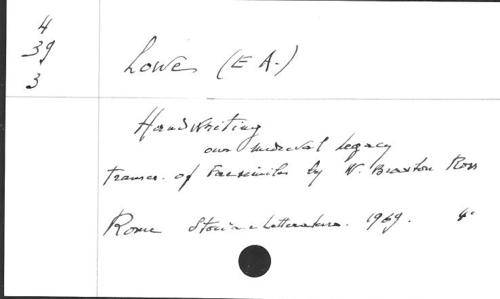 4
39
3
Lowe (E A.)
Handwriting
our medieval legacy
transcr. of facsimiles by W. Braxton Ross
Rome Storia e Letteratura. 1969. 4º